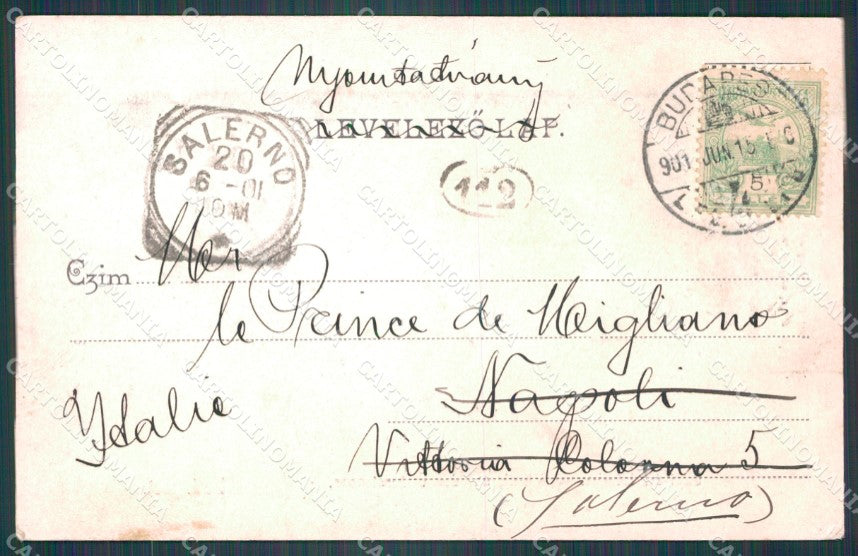 Nyomtatvány
LEVELEZŐ-LAP.
BUDAPEST
901 JUN 15
SALERNO
20
6-01
10M
112
Czim
Mer
le Prince de Migliano
Napoli
Italie
Vittoria Colonna 5
(Salerno)
CARTOLINOMANIA